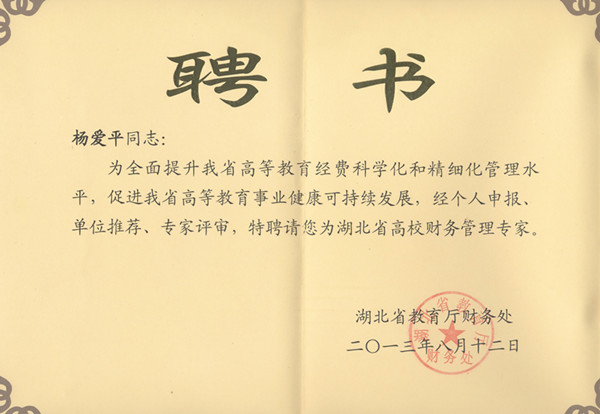 聘书
杨爱平同志：
为全面提升我省高等教育经费科学化和精细化管理水
平，促进我省高等教育事业健康可持续发展，经个人申报、
单位推荐、专家评审，特聘请您为湖北省高校财务管理专家。
湖北省教育厅财务处
二〇一三年八月十二日
湖北省教育厅
财务处